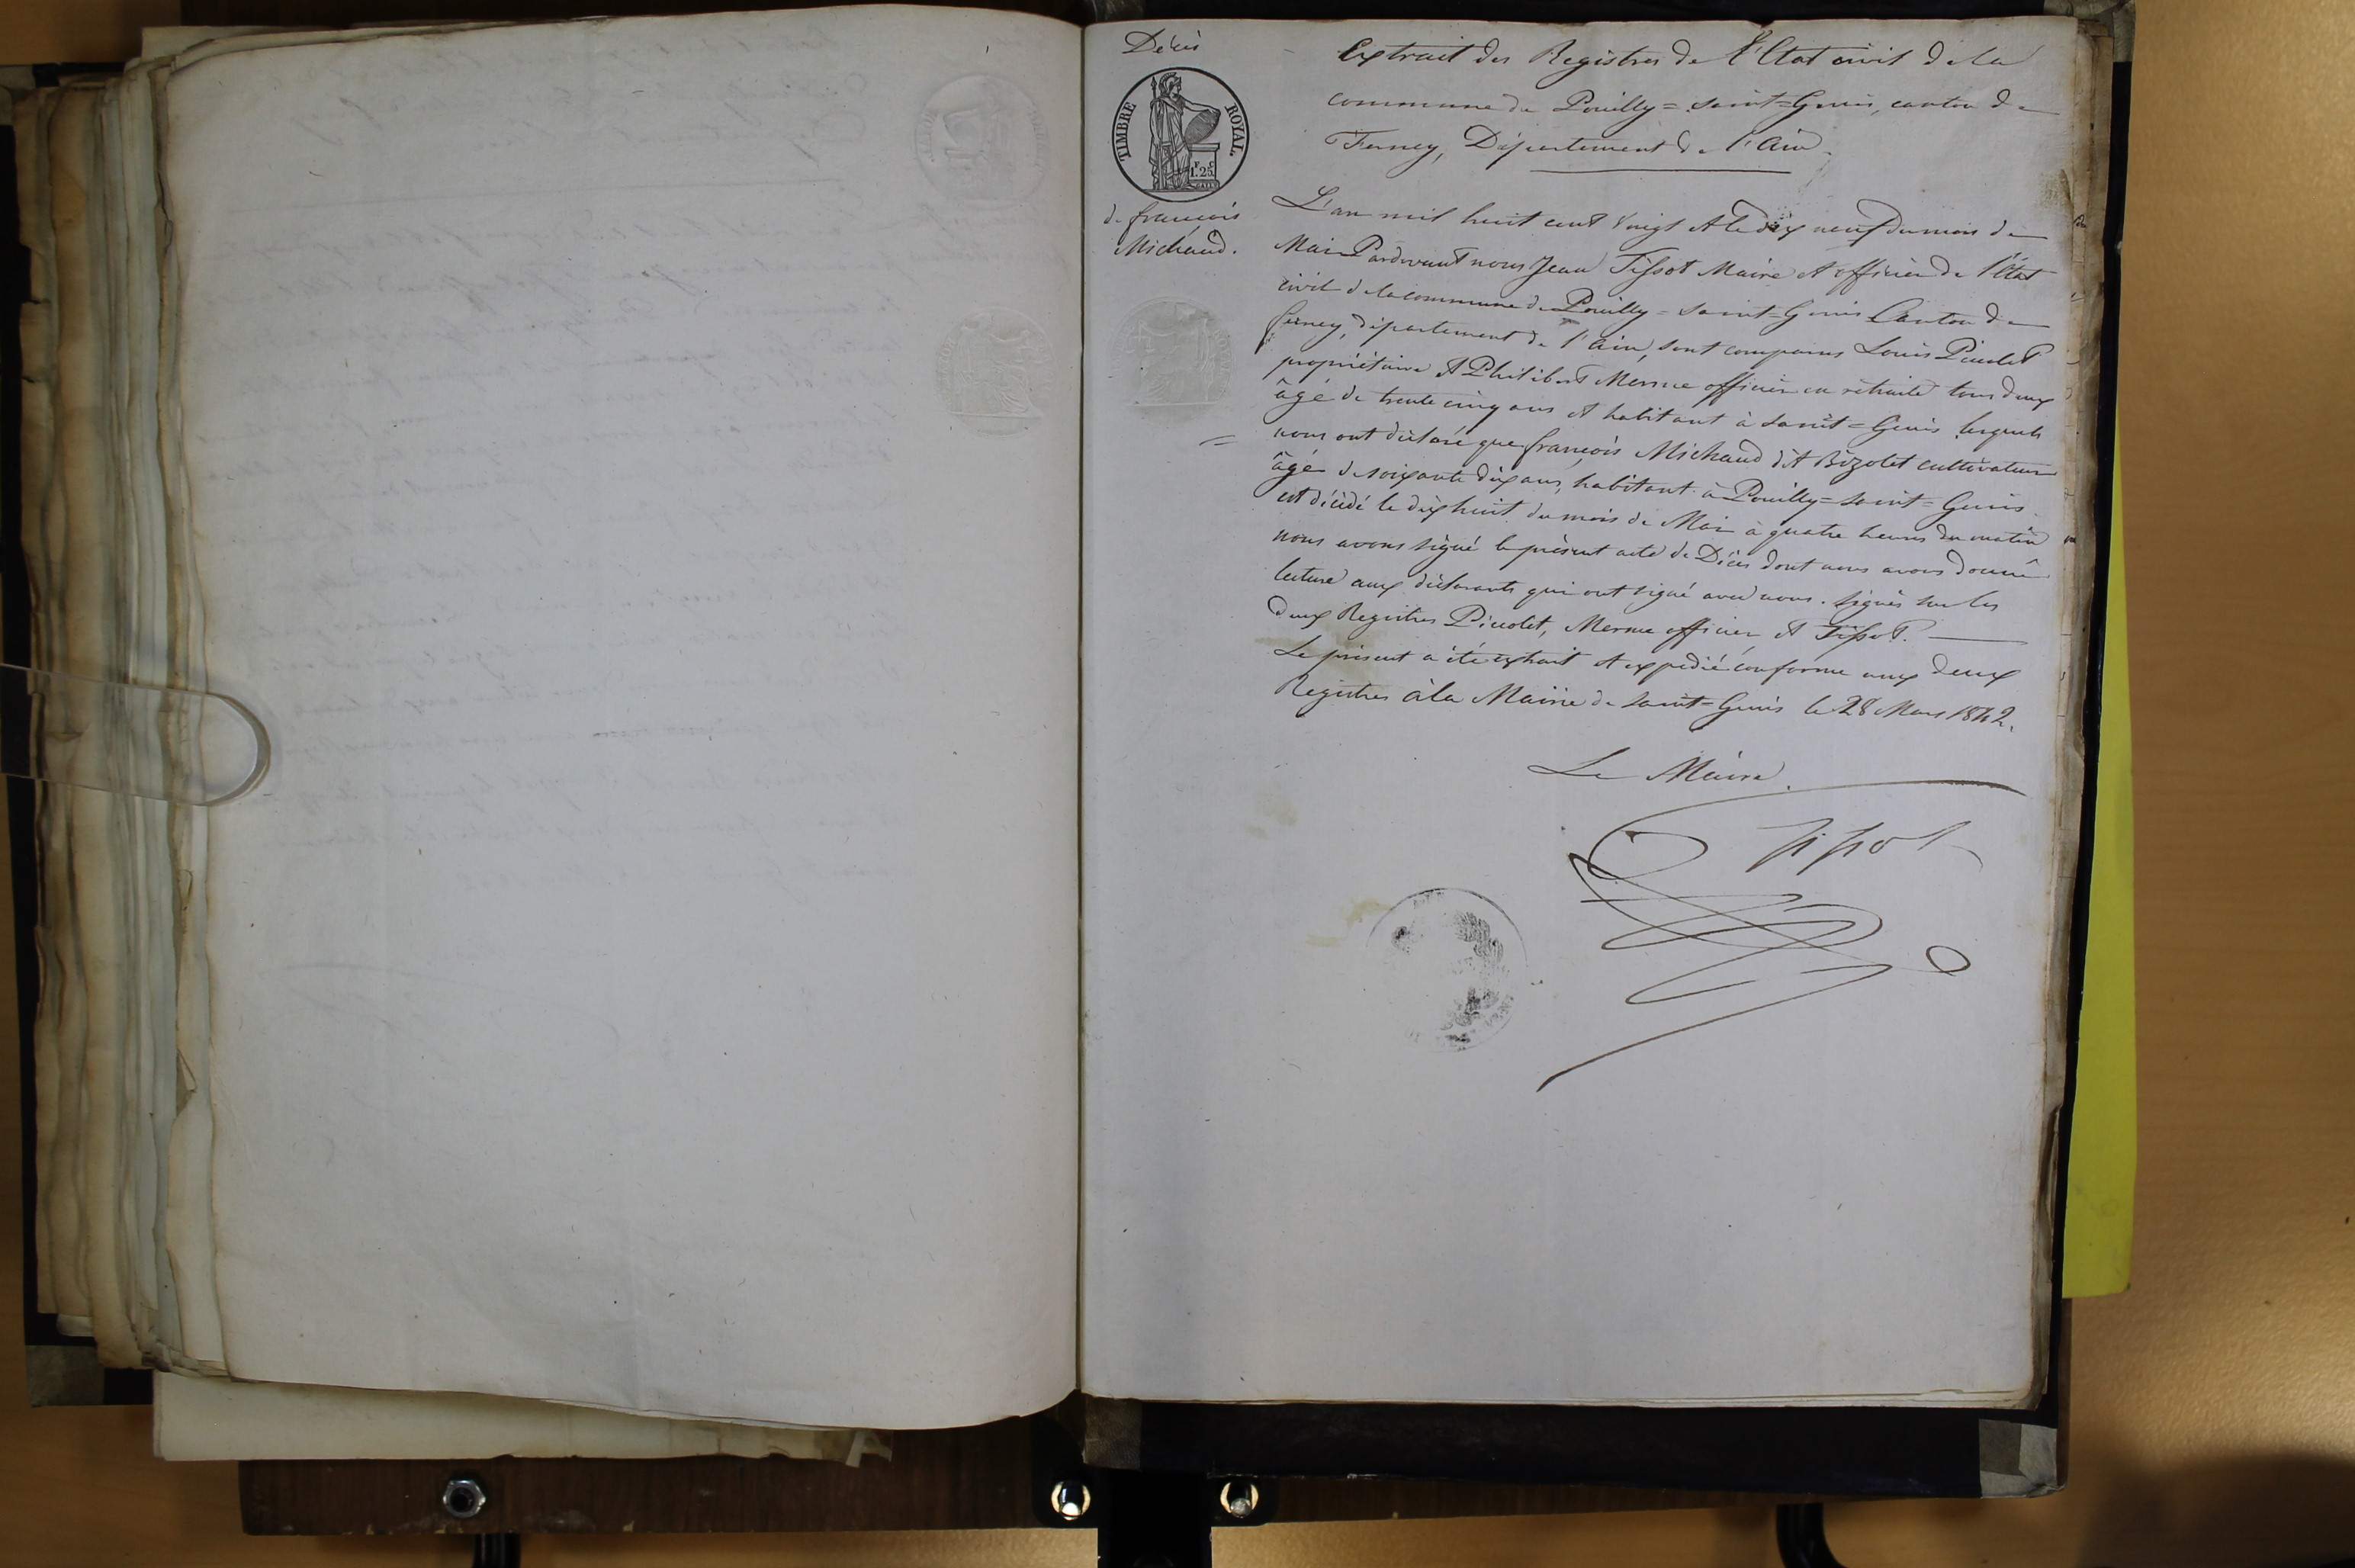 Décès
TIMBRE ROYAL
F. C.
1. 25.
de françois
Michaud.
Extrait des Registres de l'Etat civil de la
commune de Pouilly=saint=Genis, canton de
Ferney, Département de l'Ain.
L'an mil huit cent vingt et le dix neuf du mois de
Mai Pardevant nous Jean Tissot Maire et officier de l'état
civil de la commune de Pouilly=saint=Genis Canton de
ferney, département de l'Ain, sont comparus Louis Picolet
propriétaire et Philibert Mermé officier en retraite tous deux
âgé de trente cinq ans et habitant à saint=Genis lesquels
nous ont déclaré que françois Michaud dit Bizolet cultivateur
âgé de soixante dix ans, habitant à Pouilly=saint=Genis
est décédé le dix huit du mois de Mai à quatre heures du matin
nous avons signé le présent acte de Décès dont nous avons donné
lecture aux déclarants qui ont signé avec nous. signés sur les
deux Registres Picolet, Mermé officier et Tissot.
Le présent a été extrait et expédié conforme aux deux
Registres à la Mairie de saint=Genis le 28 Mars 1842.
Le Maire
Tissot